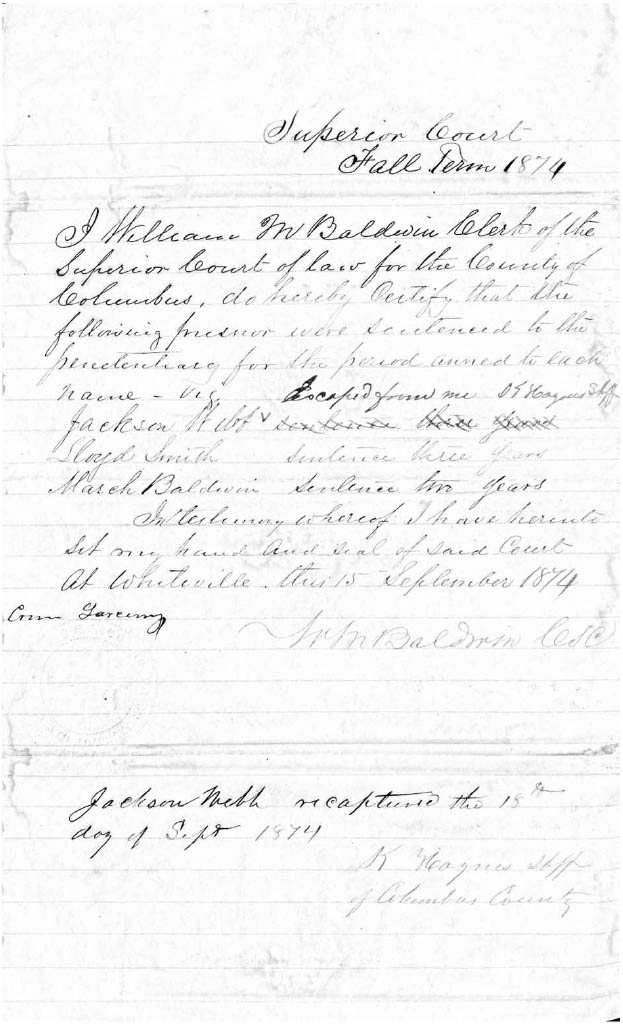 Superior Court
Fall Term 1874
I William M Baldwin Clerk of the
Superior Court of law for the County of
Columbus, do hereby Certify that the
following prisnor were sentenced to the
penetentiary for the period anned to each
name - viz Escaped from me Haynes Shff
Jackson Webb sentence three years
Lloyd Smith sentence three years
March Baldwin sentence two years
In testimony whereof I have hereinto
set my hand and seal of said Court
At Whiteville this 15 September 1874
Crime Larceny
Wm Baldwin CSC
Jackson Webb recaptured the 18th
day of Sept 1874
K Haynes Shff
of Columbus County